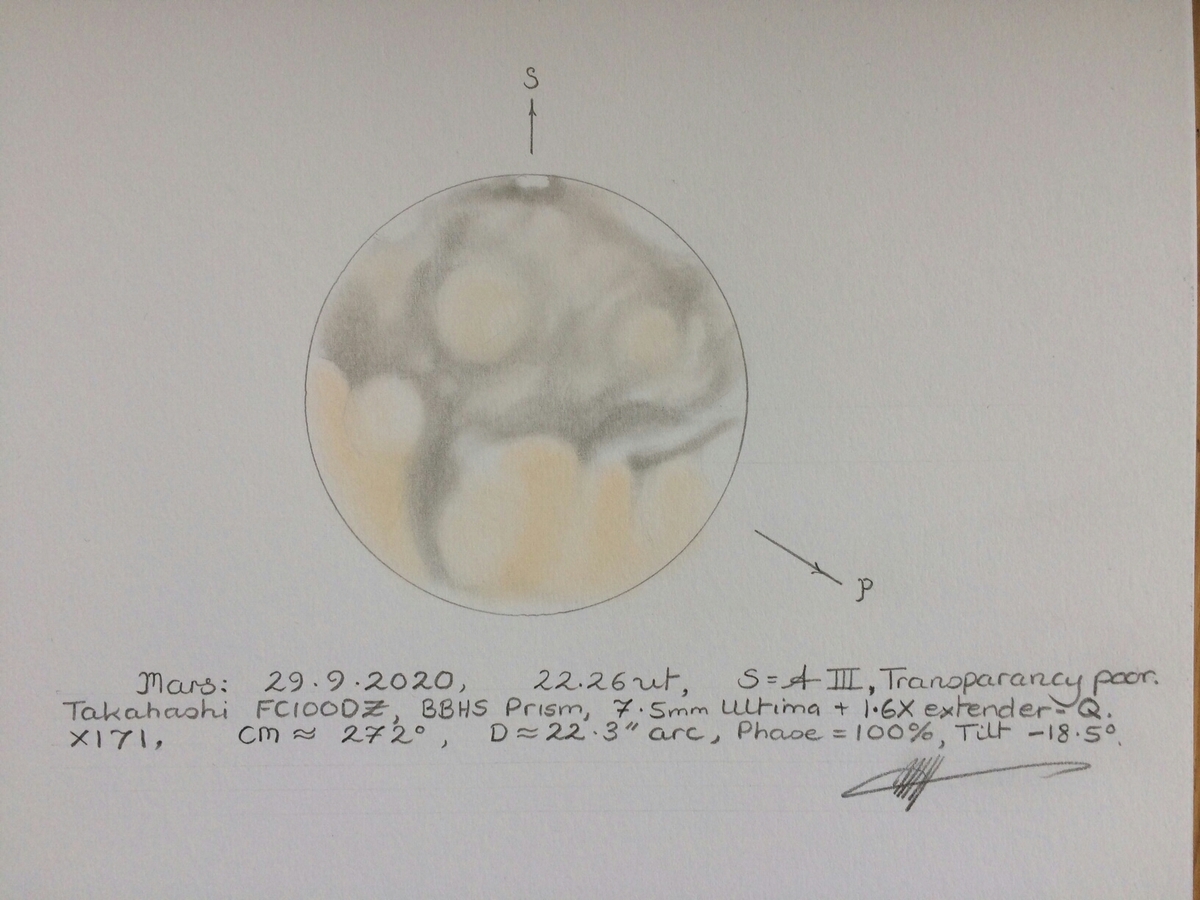 S
P
Mars: 29.9.2020, 22.26ut, S=A III, Transparancy poor.
Takahashi FC100DZ, BBHS Prism, 7.5mm Ultima + 1.6X extender-Q.
X171, CM ≈ 272°, D≈22.3" arc, Phase = 100%, Tilt -18.5°.